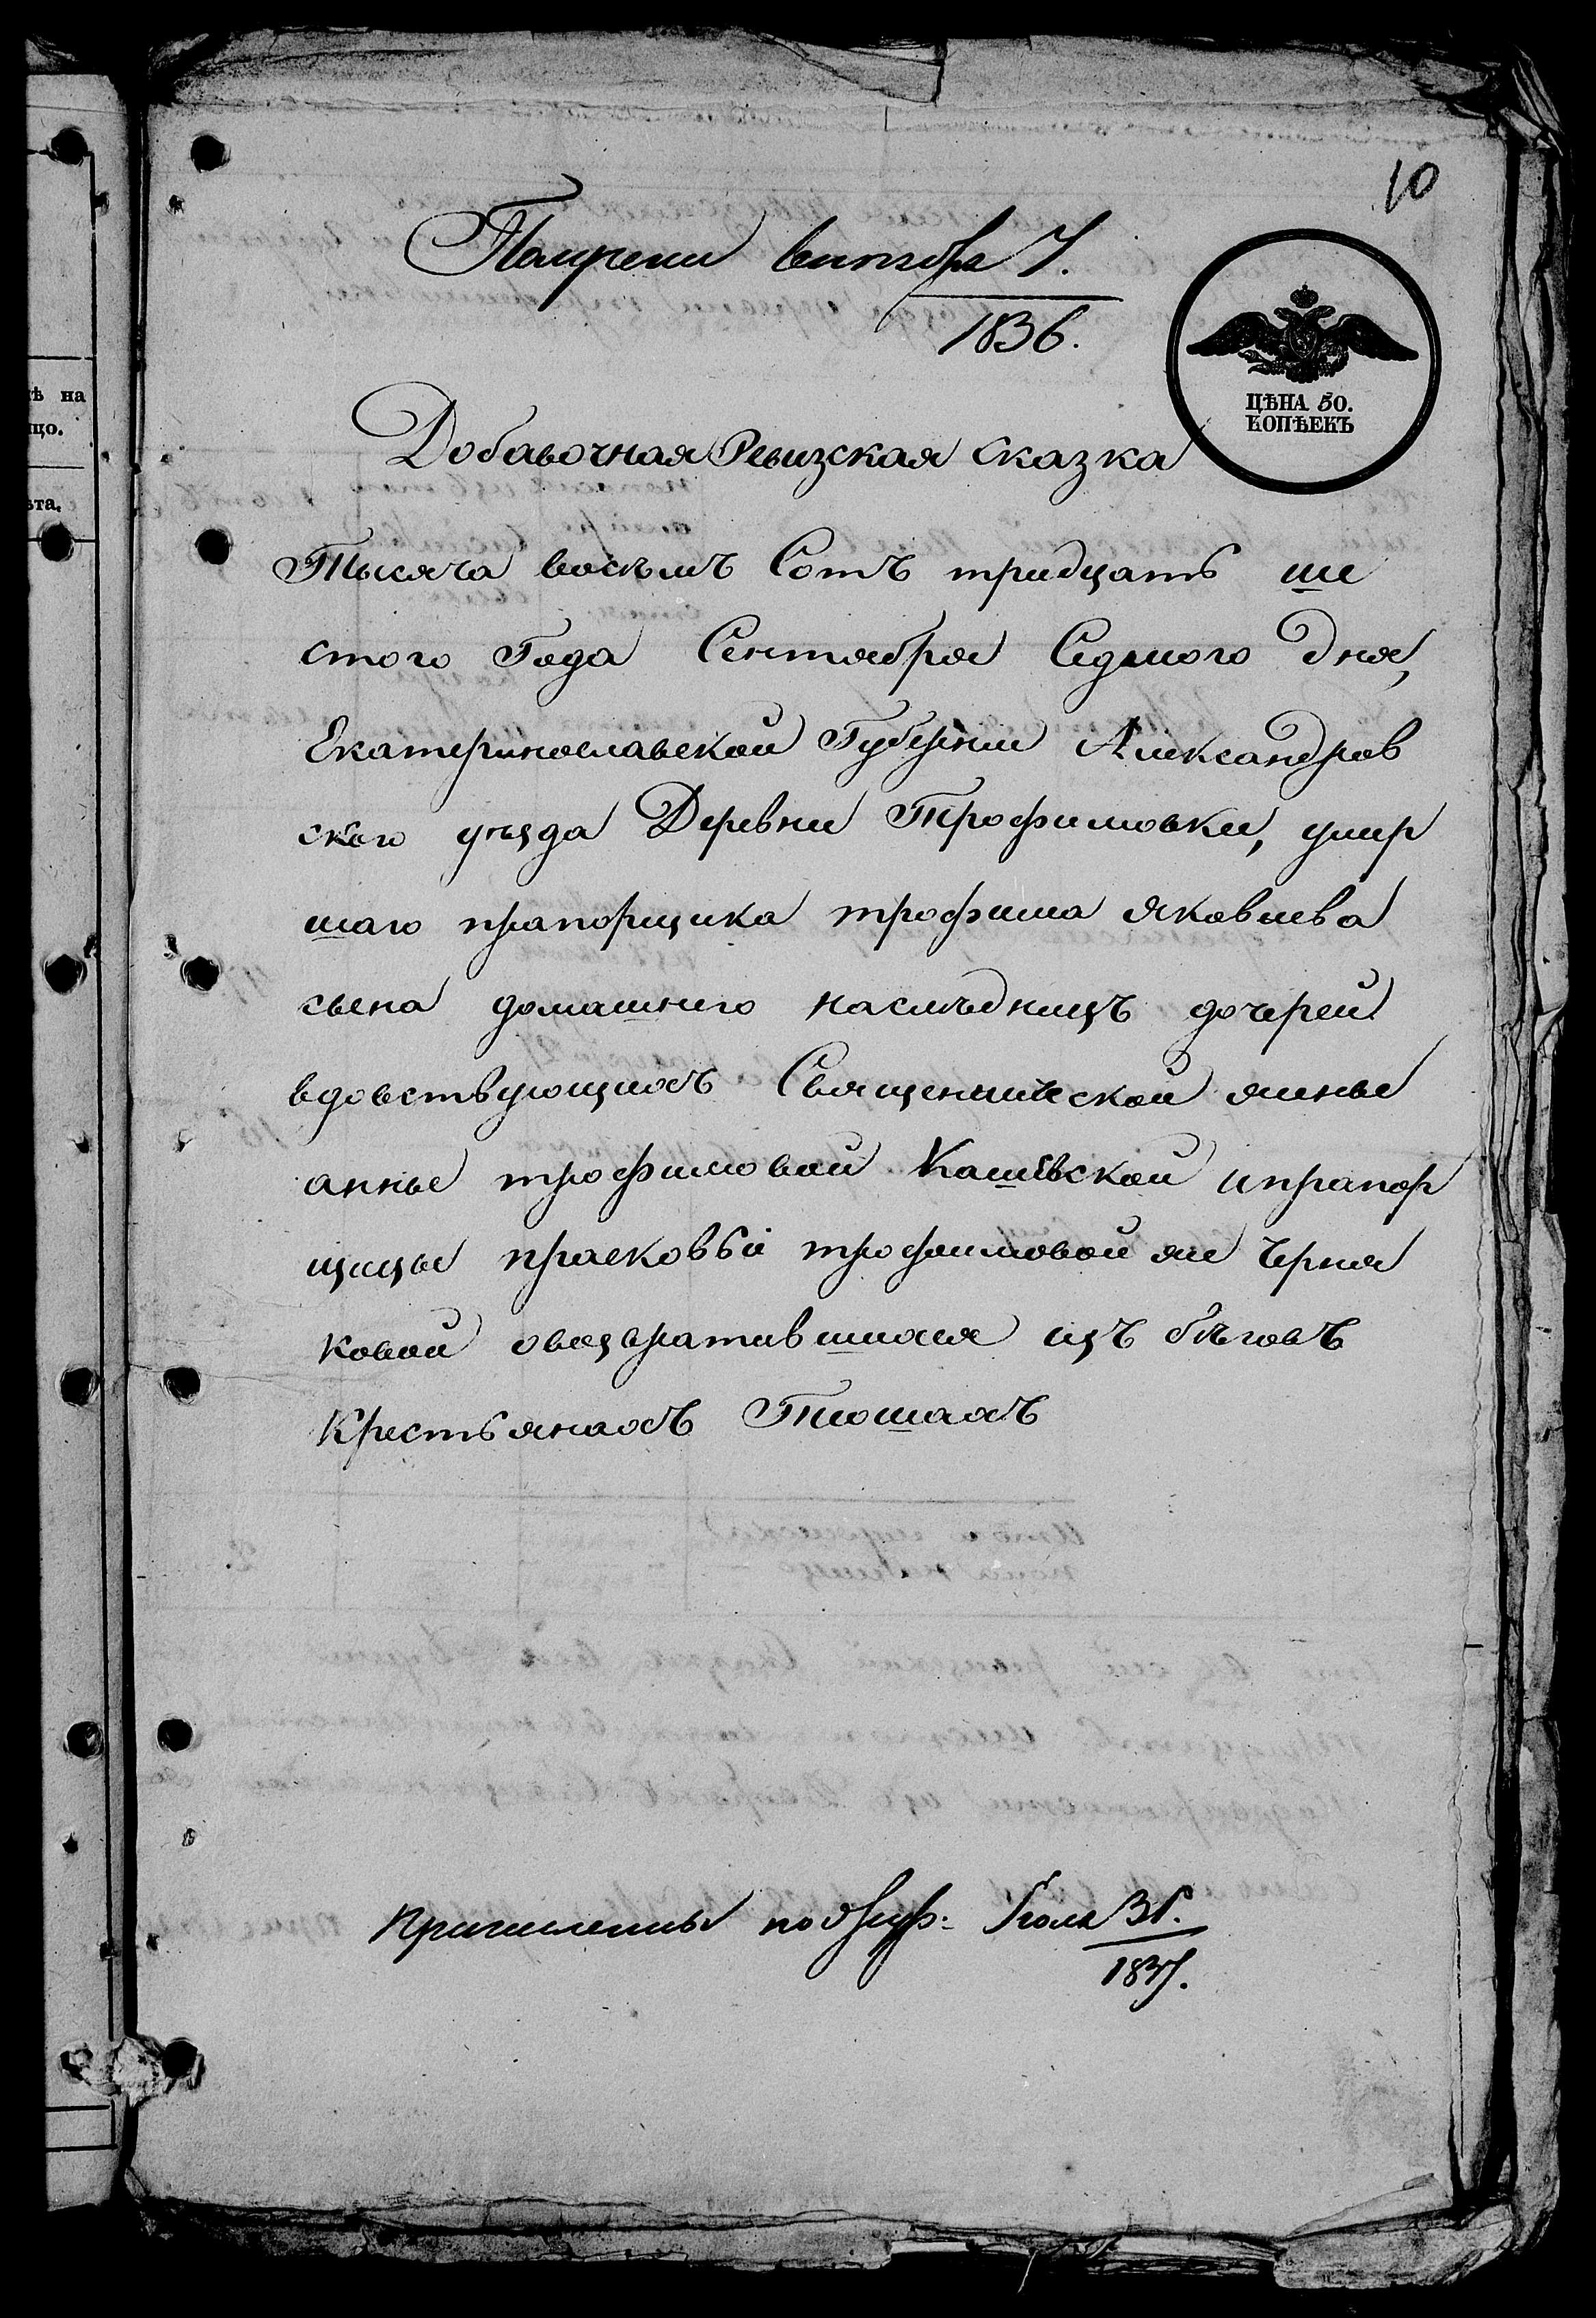 10
Получена сентября 7.
1836.
ЦѢНА 50.
КОПѢЕКЪ
ѣ на
цо.
ѣта.
Добавочная Ревизская сказка
Тысяча восѣмъ Сотъ тридцать ше
стого Года Сентября Седмого дня,
Екатеринославской Губернии Александров
ского уѣзда Деревни Трофимовки, умер
шаго прапорщика трофима яковлева
сына домашнего наслѣдницъ дочерей
вдовствующихъ Священической жены
анны трофимовой Кашевской ипрапор
щицы прасковьи трофимовой же Черня
ковой овозвратившихся изъ бѣговъ
Крестьянахъ
Причислены Июля 31.
1837.